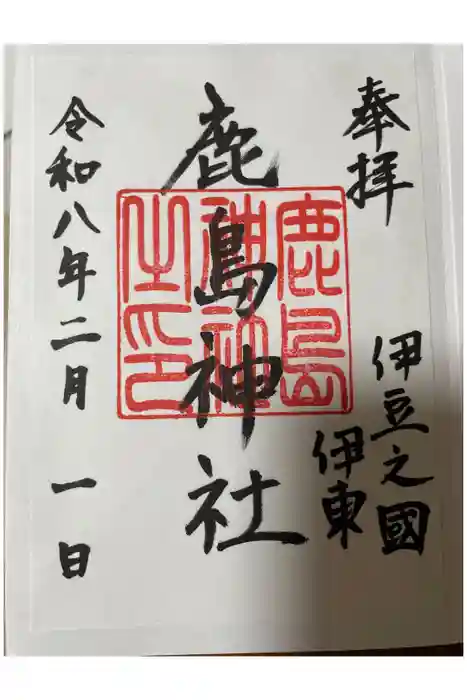 奉拝
伊豆之國
伊東
鹿島神社
鹿島
神社
之印
令和八年二月一日